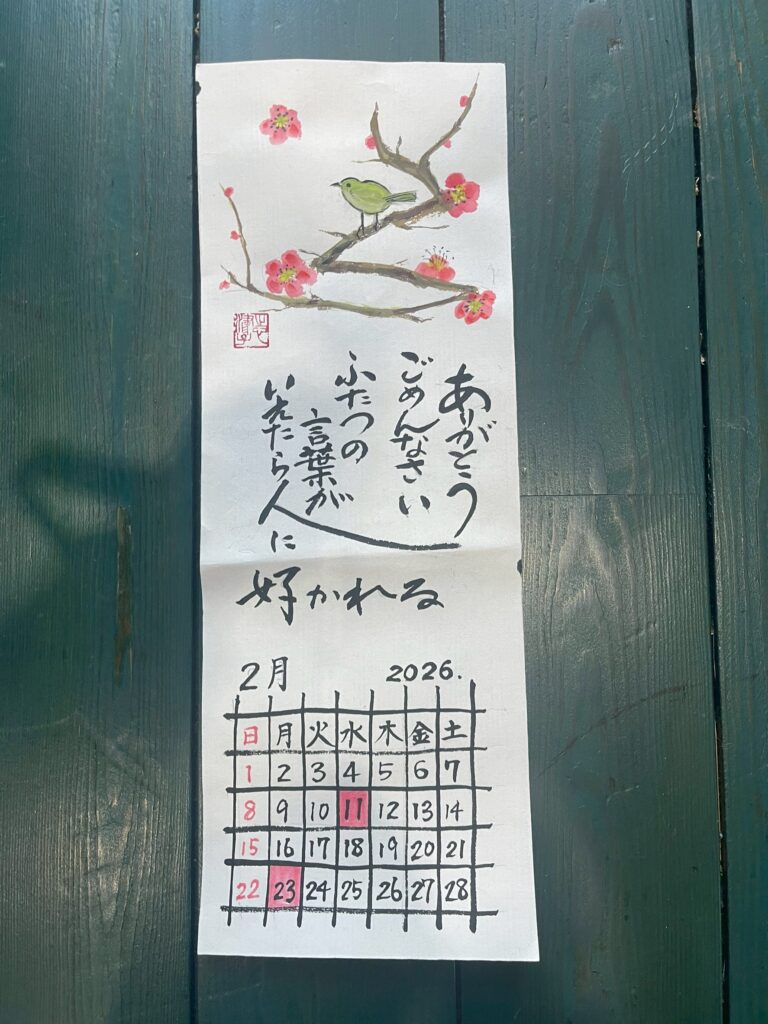 ありがとう
ごめんなさい
ふたつの
言葉が
いえたら人に
好かれる
2月 2026.
日 月 火 水 木 金 土
1 2 3 4 5 6 7
8 9 10 11 12 13 14
15 16 17 18 19 20 21
22 23 24 25 26 27 28